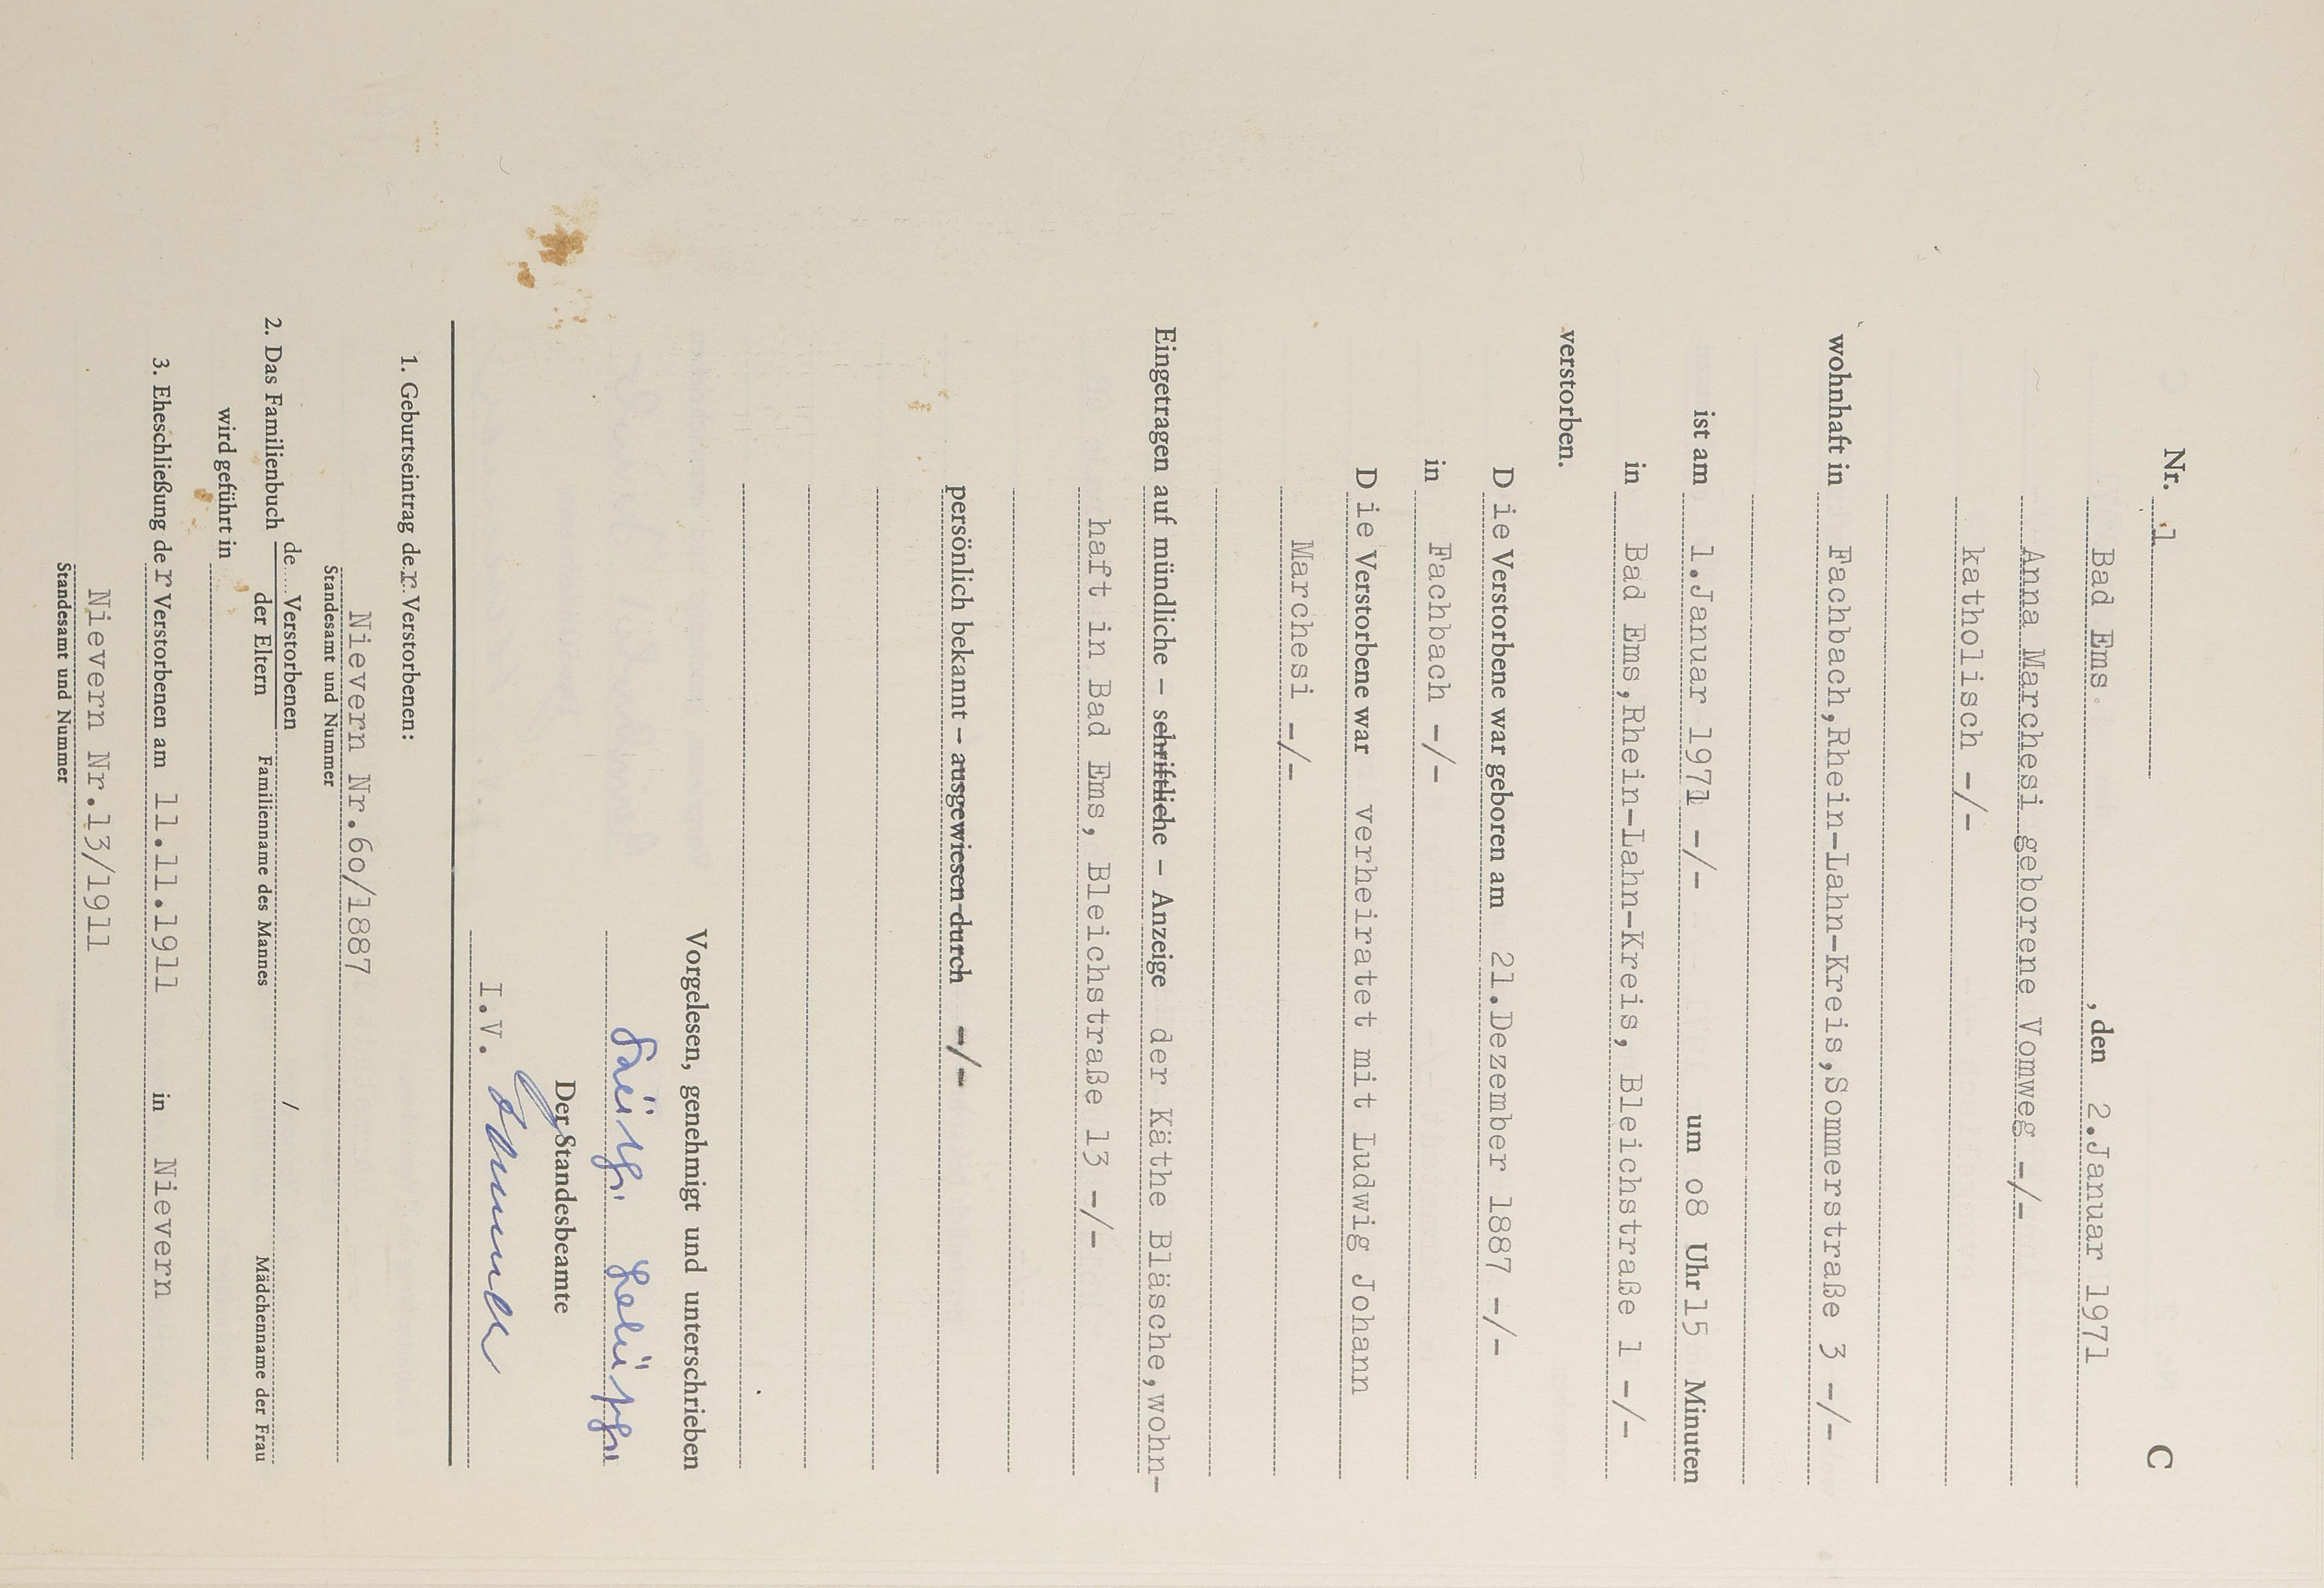 Nr. 1 C
Bad Ems, den 2.Januar 1971
Anna Marchesi geborene Vomweg -/-
katholisch -/-
wohnhaft in Fachbach,Rhein-Lahn-Kreis,Sommerstraße 3 -/-
ist am 1.Januar 1971 -/- um o8 Uhr 15 Minuten
in Bad Ems,Rhein-Lahn-Kreis, Bleichstraße 1 -/-
verstorben.
Die Verstorbene war geboren am 21.Dezember 1887 -/-
in Fachbach -/-
Die Verstorbene war verheiratet mit Ludwig Johann
Marchesi -/-
Eingetragen auf mündliche – schriftliche – Anzeige der Käthe Bläsche,wohn-
haft in Bad Ems, Bleichstraße 13 -/-
persönlich bekannt – ausgewiesen durch -/-
Vorgelesen, genehmigt und unterschrieben
Bläsche
Der Standesbeamte
I.V.
1. Geburtseintrag der Verstorbenen:
Nievern Nr.6o/1887
Standesamt und Nummer
2. Das Familienbuch de.... Verstorbenen /
der Eltern Familienname des Mannes Mädchenname der Frau
wird geführt in
3. Eheschließung der Verstorbenen am 11.11.1911 in Nievern
Nievern Nr.13/1911
Standesamt und Nummer